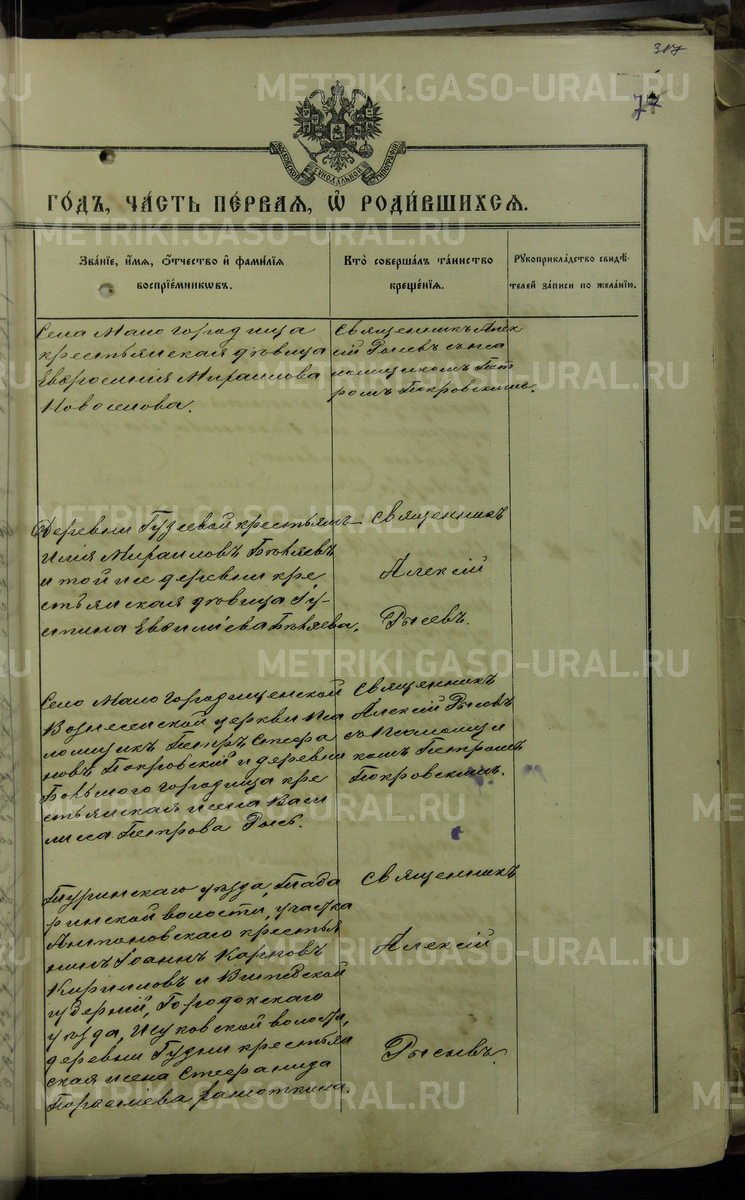 307
77
МОСКОВСКОЙ СѴНОДАЛЬНОЙ ТИПОГРАФІИ
ГО́ДЪ, ЧА́СТЬ ПЕ́РВАЯ, Ѡ҆ РОДИ́ВШИХСЯ.
Зва́ніе, и҆́мя, ѻ҆́тчество и҆ фами́лія
воспріе́мниковъ.
Кто̀ соверша́лъ та́инство
креще́нія.
Рꙋкоприкла́дство свидѣ́-
телей за́писи по жела́нію.
Села Мало Городища
крестьянская дѣвица
Евфросинія Михаилова
Новоселова.
Священникъ Алек
сій Рысевъ съ пса
ломщикомъ Пет
ромъ Покровскимъ.
Деревни Гузеевой крестьян.
Илія Михаиловъ Бѣляевъ
и той же деревни кре
стьянская дѣвица Іу-
стина Бѣляева.
Священникъ
Алексій
Рысевъ.
Село Мало Городищенской
Вознесенской церкви пса
ломщикъ Петръ Стефа
новъ Покровскій и деревни
Большого Городища кре
стьянская жена Васи
лиса Петрова Рысь.
Священникъ
Алексій Рысевъ
съ псаломщи
комъ Петромъ
Покровскимъ.
Туринскаго уѣзда, Таба
ринской волости, участка
Антоновскаго крестья
нинъ Іоаннъ Карповъ
Кирилловъ и Витебской
губерніи, Городокскаго
уѣзда, волости,
деревни крестьян
ская жена Стефанида
Священникъ
Алексій
Рысевъ.
METRIKI.GASO-URAL.RU